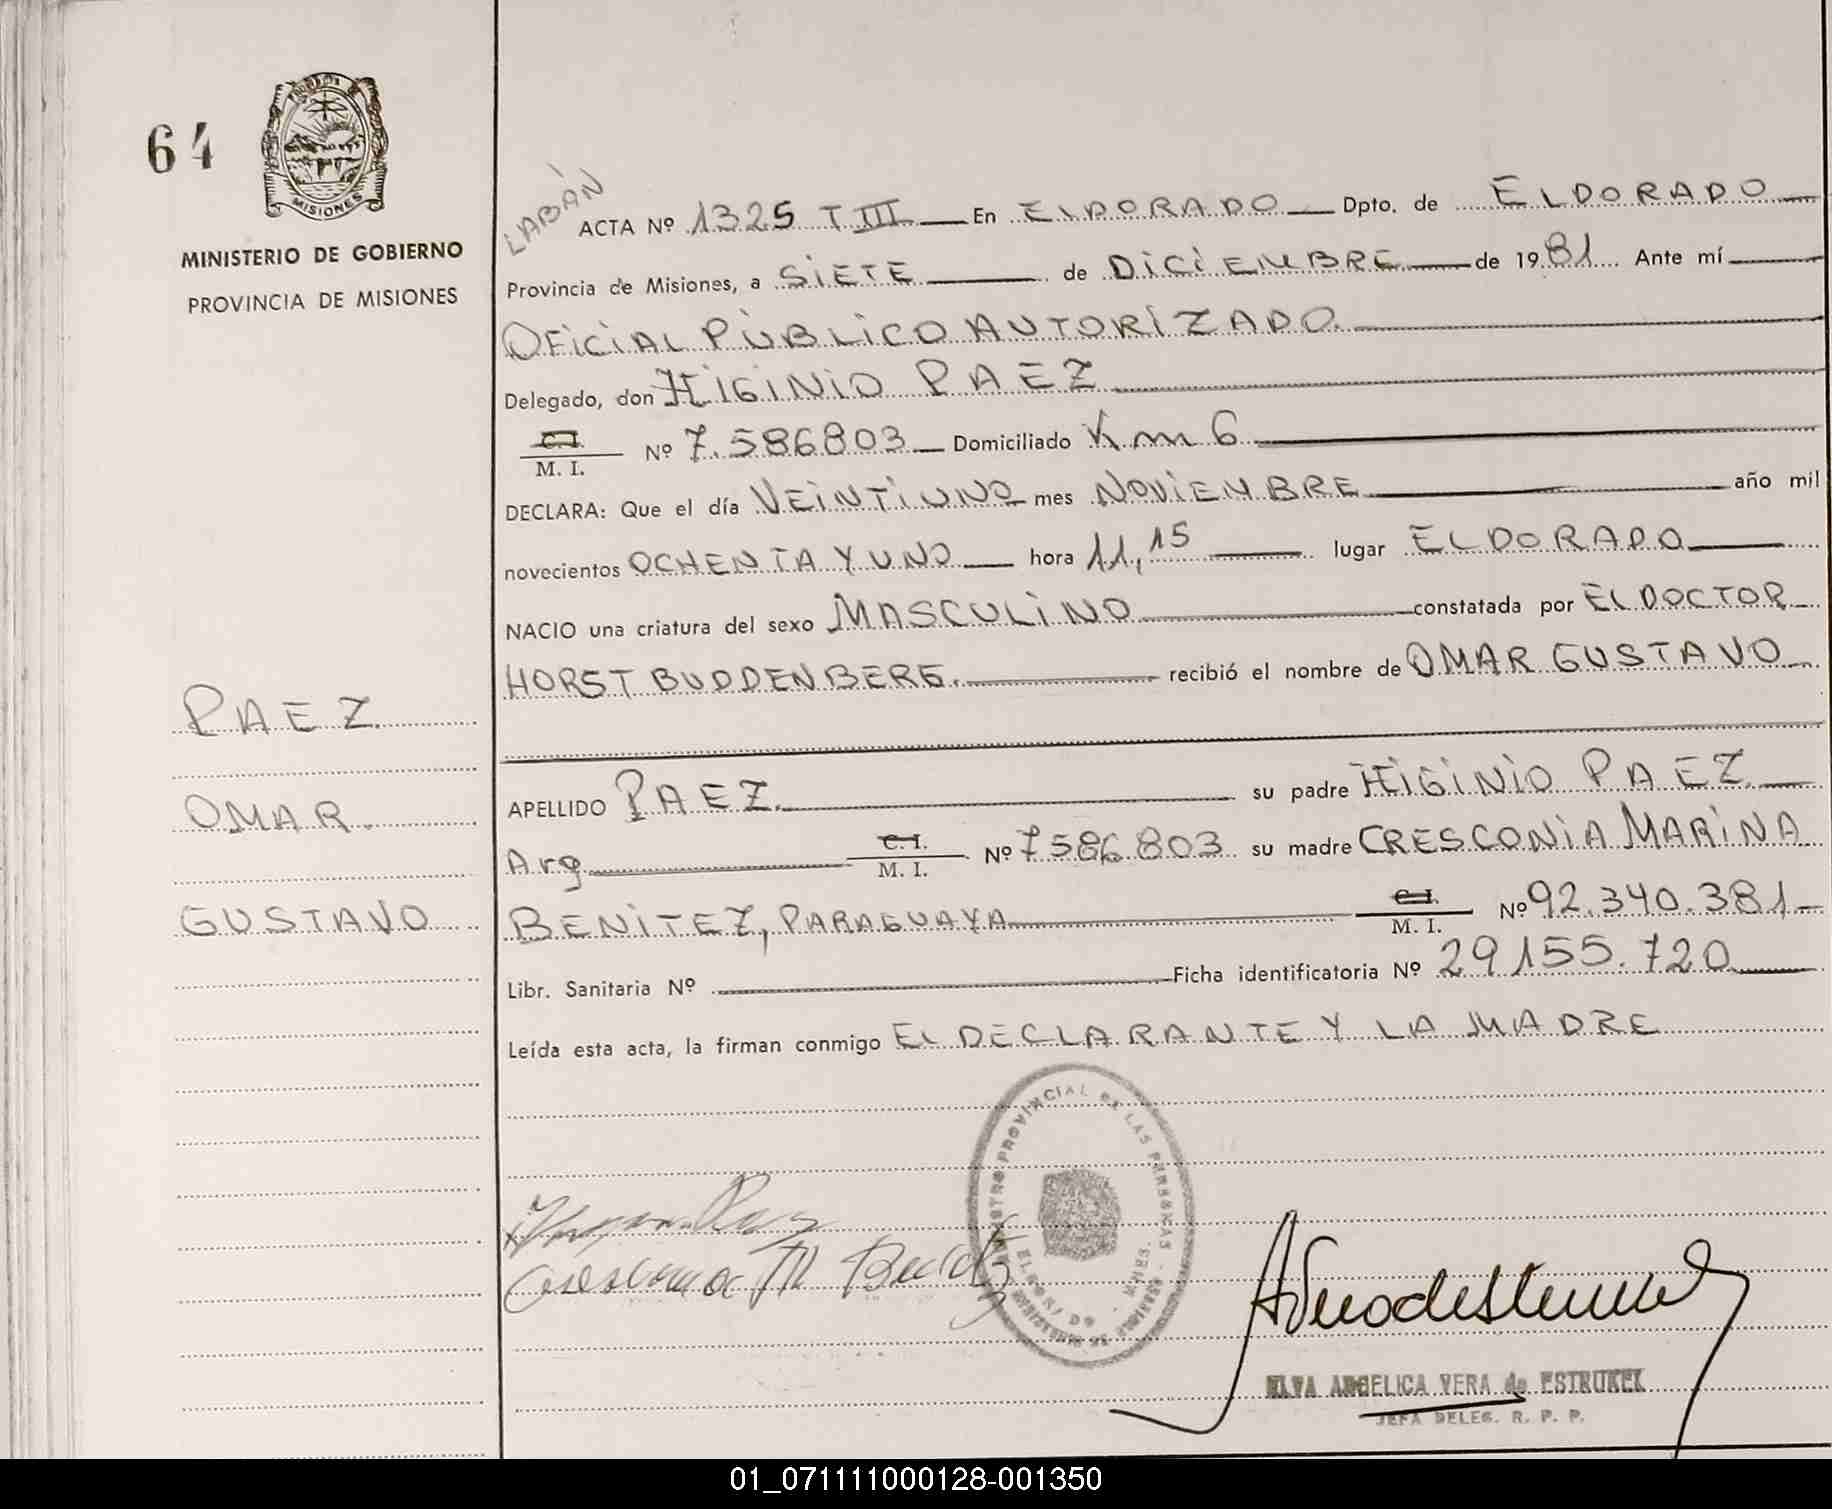 64
MISIONES
MINISTERIO DE GOBIERNO
PROVINCIA DE MISIONES
PAEZ
OMAR.
GUSTAVO
LABÁN
ACTA Nº 1325 T III En ELDORADO Dpto. de ELDORADO
Provincia de Misiones, a SIETE de DICIEMBRE de 1981 Ante mí
OFICIAL PÚBLICO AUTORIZADO.
Delegado, don HIGINIO PAEZ
C.I.
M. I. Nº 7.586803 Domiciliado Km 6
DECLARA: Que el día VEINTIUNO mes NOVIEMBRE año mil
novecientos OCHENTA Y UNO hora 11,15 lugar ELDORADO
NACIO una criatura del sexo MASCULINO constatada por EL DOCTOR
HORST BUDDENBERG. recibió el nombre de OMAR GUSTAVO
APELLIDO PAEZ. su padre HIGINIO PAEZ.
Arg. C.I.
M. I. Nº 7586.803 su madre CRESCONIA MARINA
BENITEZ, PARAGUAYA C.I.
M. I. Nº 92.340.381
Libr. Sanitaria Nº Ficha identificatoria Nº 29155.720
Leída esta acta, la firman conmigo EL DECLARANTE Y LA MADRE
PROVINCIAL DE LAS PERSONAS
ELDORADO - MNES.
ELVA ANGELICA VERA de ESTRUKEL
JEFA DELEG. R. P. P.
01_071111000128-001350